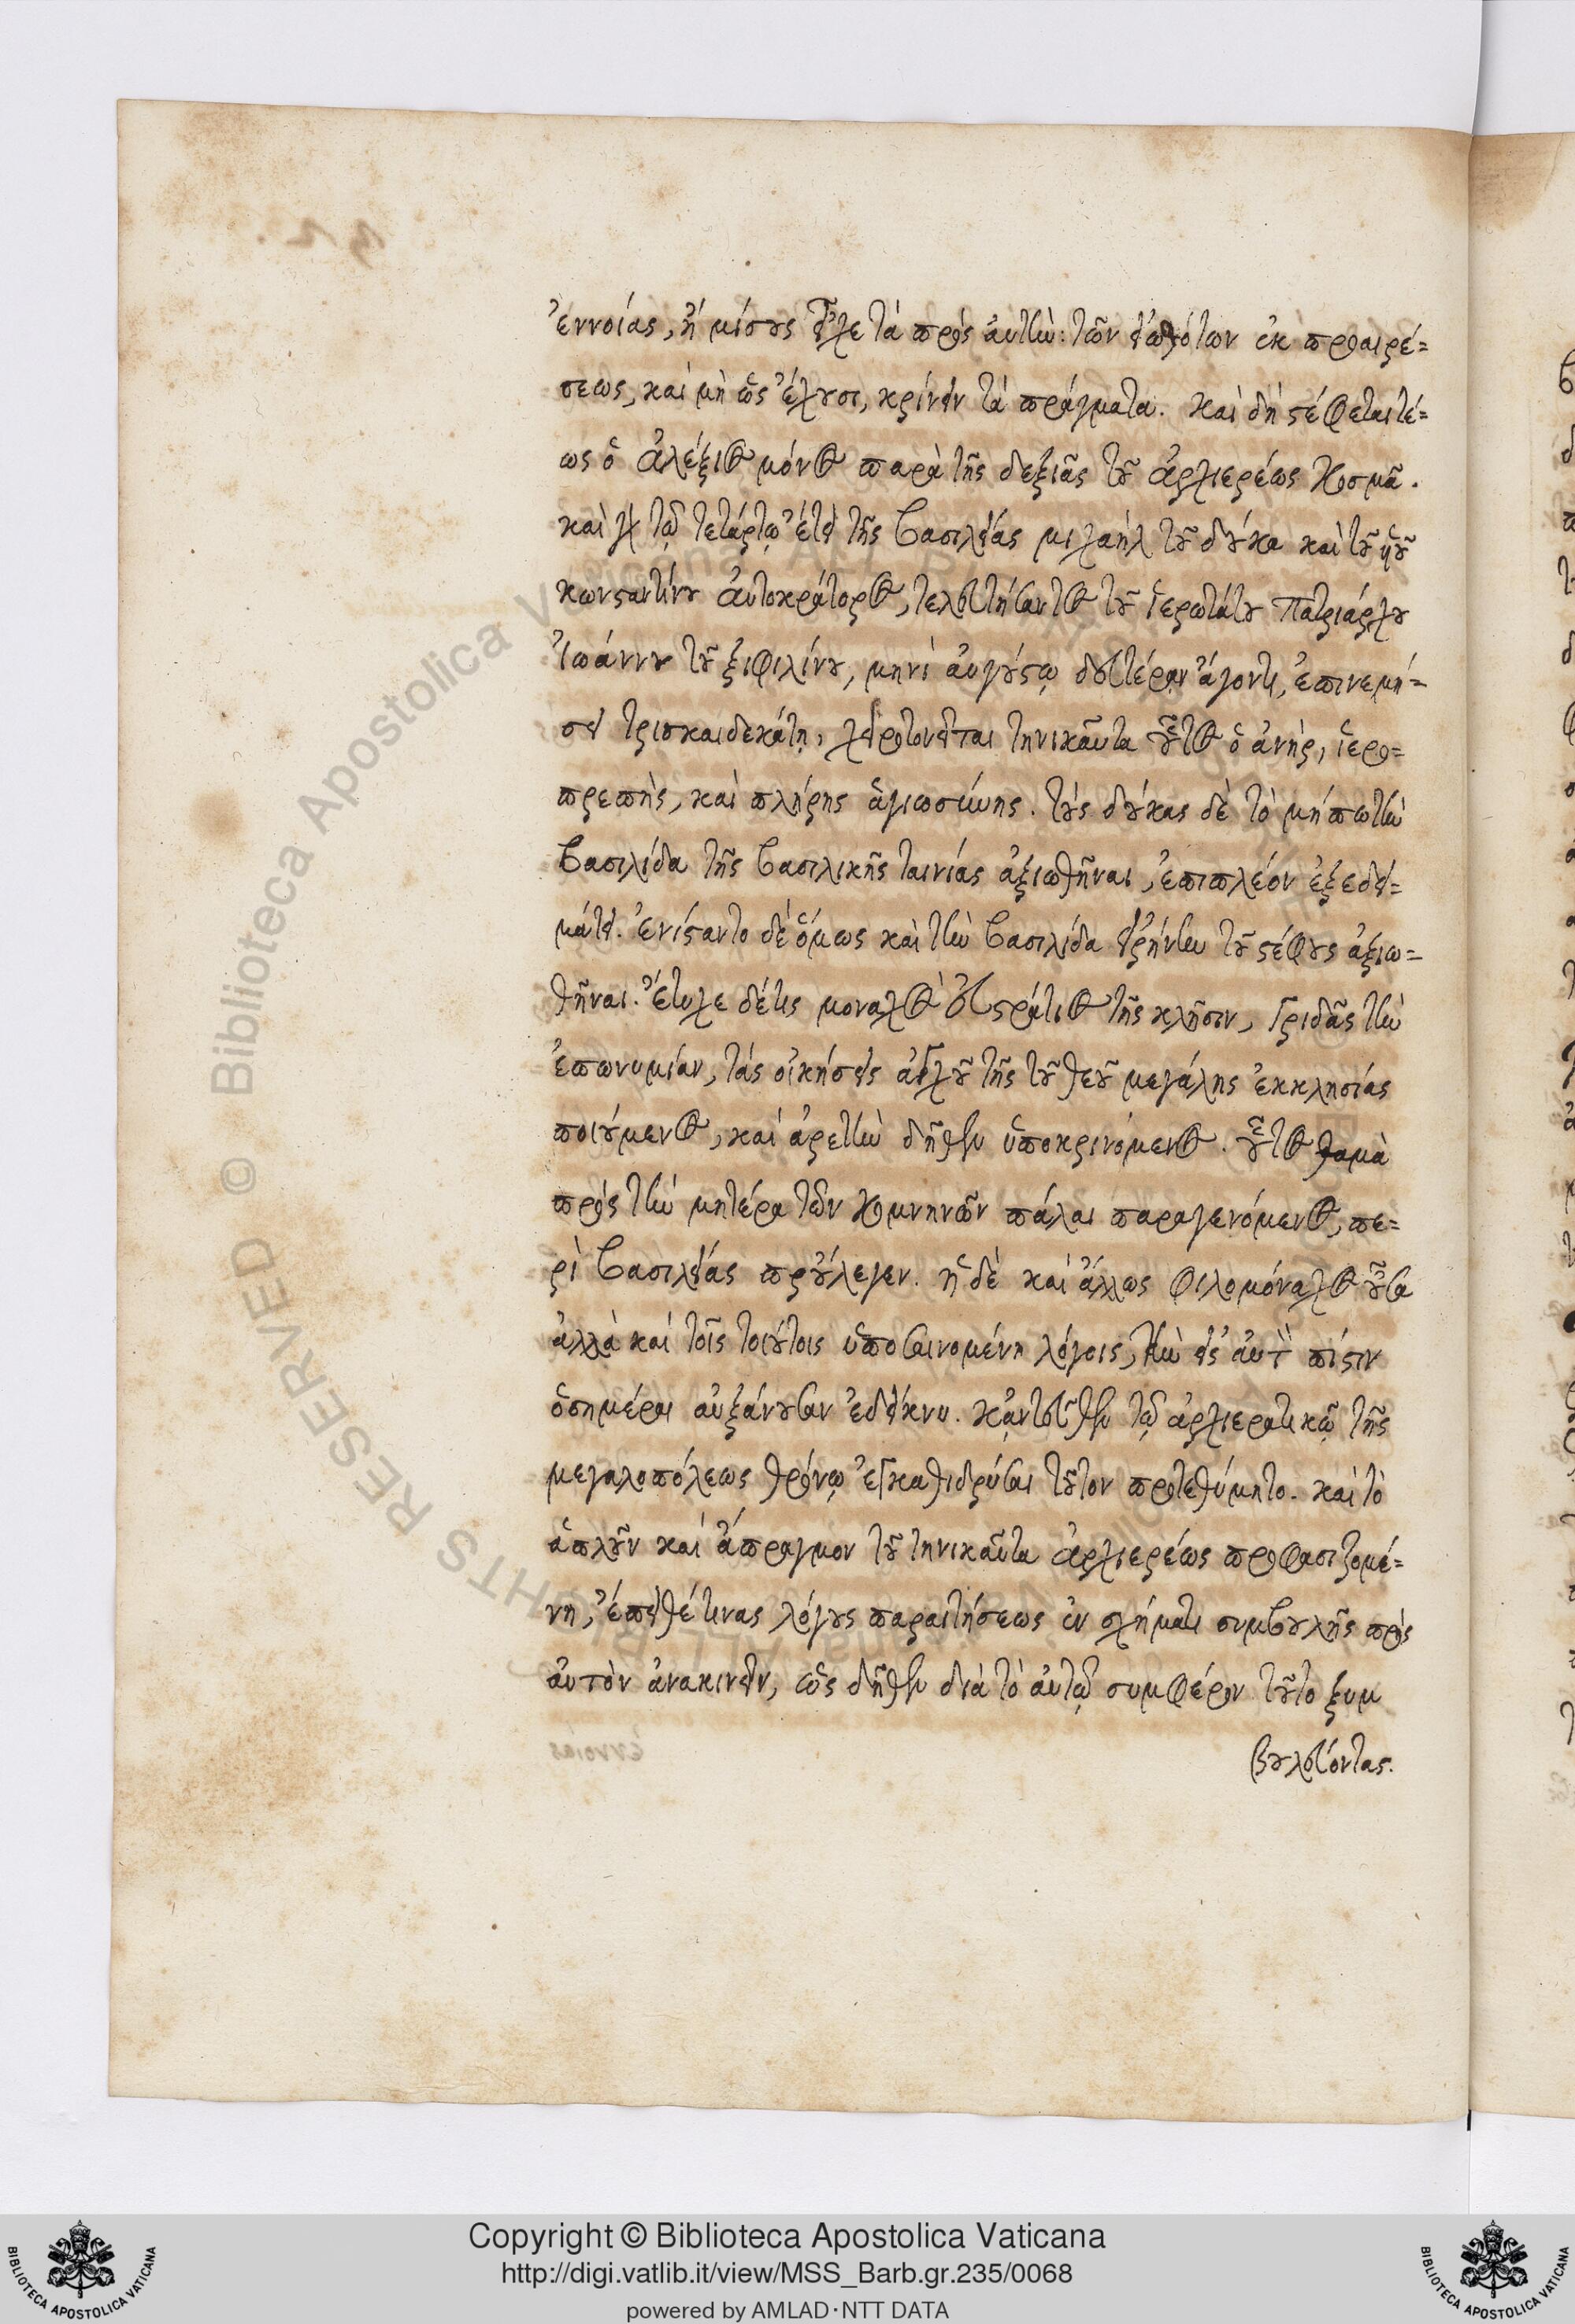 ἐννοίας, ἢ μίσους εἶχε τὰ πρὸς αὐτήν: τῶν εἰωθότων ἐκ προαιρέ=
σεως, καὶ μὴ ὡς ἔχουσι, κρίνειν τὰ πράγματα. καὶ δὴ στέφεται τέ=
ως ὁ ἀλέξιος μόνος παρὰ τῆς δεξιᾶς τοῦ ἀρχιερέως κοσμᾶ.
καὶ γὰρ τῷ τετάρτῳ ἔτει τῆς βασιλείας μιχαὴλ τοῦ δούκα καὶ τοῦ υἱοῦ
κωνσταντίνου αὐτοκράτορος, τελευτήσαντος τοῦ ἱερωτάτου πατριάρχου
Ἰωάννου τοῦ ξιφιλίνου, μηνὶ αὐγούστῳ δευτέραν ἄγοντι, ἐπινεμή=
σει τρισκαιδεκάτῃ, χειροτονεῖται τηνικαῦτα οὗτος ὁ ἀνὴρ, ἱερο=
πρεπὴς, καὶ πλήρης ἁγιωσύνης. τοὺς δούκας δὲ τὸ μήπω τὴν
βασιλίδα τῆς βασιλικῆς ταινίας ἀξιωθῆναι, ἐπιπλέον ἐξεδει=
μάτει. ἐνίσταντο δὲ ὅμως καὶ τὴν βασιλίδα εἰρήνην τοῦ στέφους ἀξιω=
θῆναι. ἔτυχε δέ τις μοναχὸς εὐστράτιος τῆς κλῆσιν, γριδᾶς τὴν
ἐπωνυμίαν, τὰς οἰκήσεις ἀγχοῦ τῆς τοῦ θεοῦ μεγάλης ἐκκλησίας
ποιούμενος, καὶ ἀρετὴν δῆθεν ὑποκρινόμενος. οὗτος θαμὰ
πρὸς τὴν μητέρα τῶν κομνηνῶν πάλαι παραγενόμενος, πε=
ρὶ βασιλείας προὔλεγεν. ἡ δὲ καὶ ἄλλως φιλομόναχος οὖσα
ἀλλὰ καὶ τοῖς τοιούτοις ὑποσαινομένη λόγοις, τὴν εἰς αὐτὸν πίστιν
ὁσημέραι αὐξάνουσαν ἐδείκνυ. κᾀντεῦθεν τῷ ἀρχιερατικῷ τῆς
μεγαλοπόλεως θρόνῳ ἐγκαθιδρῦσαι τοῦτον προτεθύμητο. καὶ τὸ
ἁπλοῦν καὶ ἄπραγμον τοῦ τηνικαῦτα ἀρχιερέως προφασιζομέ=
νη, ἔπειθέ τινας λόγους παραιτήσεως ἐν σχήματι συμβουλῆς πρὸς
αὐτὸν ἀνακινεῖν, ὡς δῆθεν διὰ τὸ αὐτῷ συμφέρον τοῦτο ξυμ
βουλεύοντας.
Copyright © Biblioteca Apostolica Vaticana
http://digi.vatlib.it/view/MSS_Barb.gr.235/0068
powered by AMLAD·NTT DATA